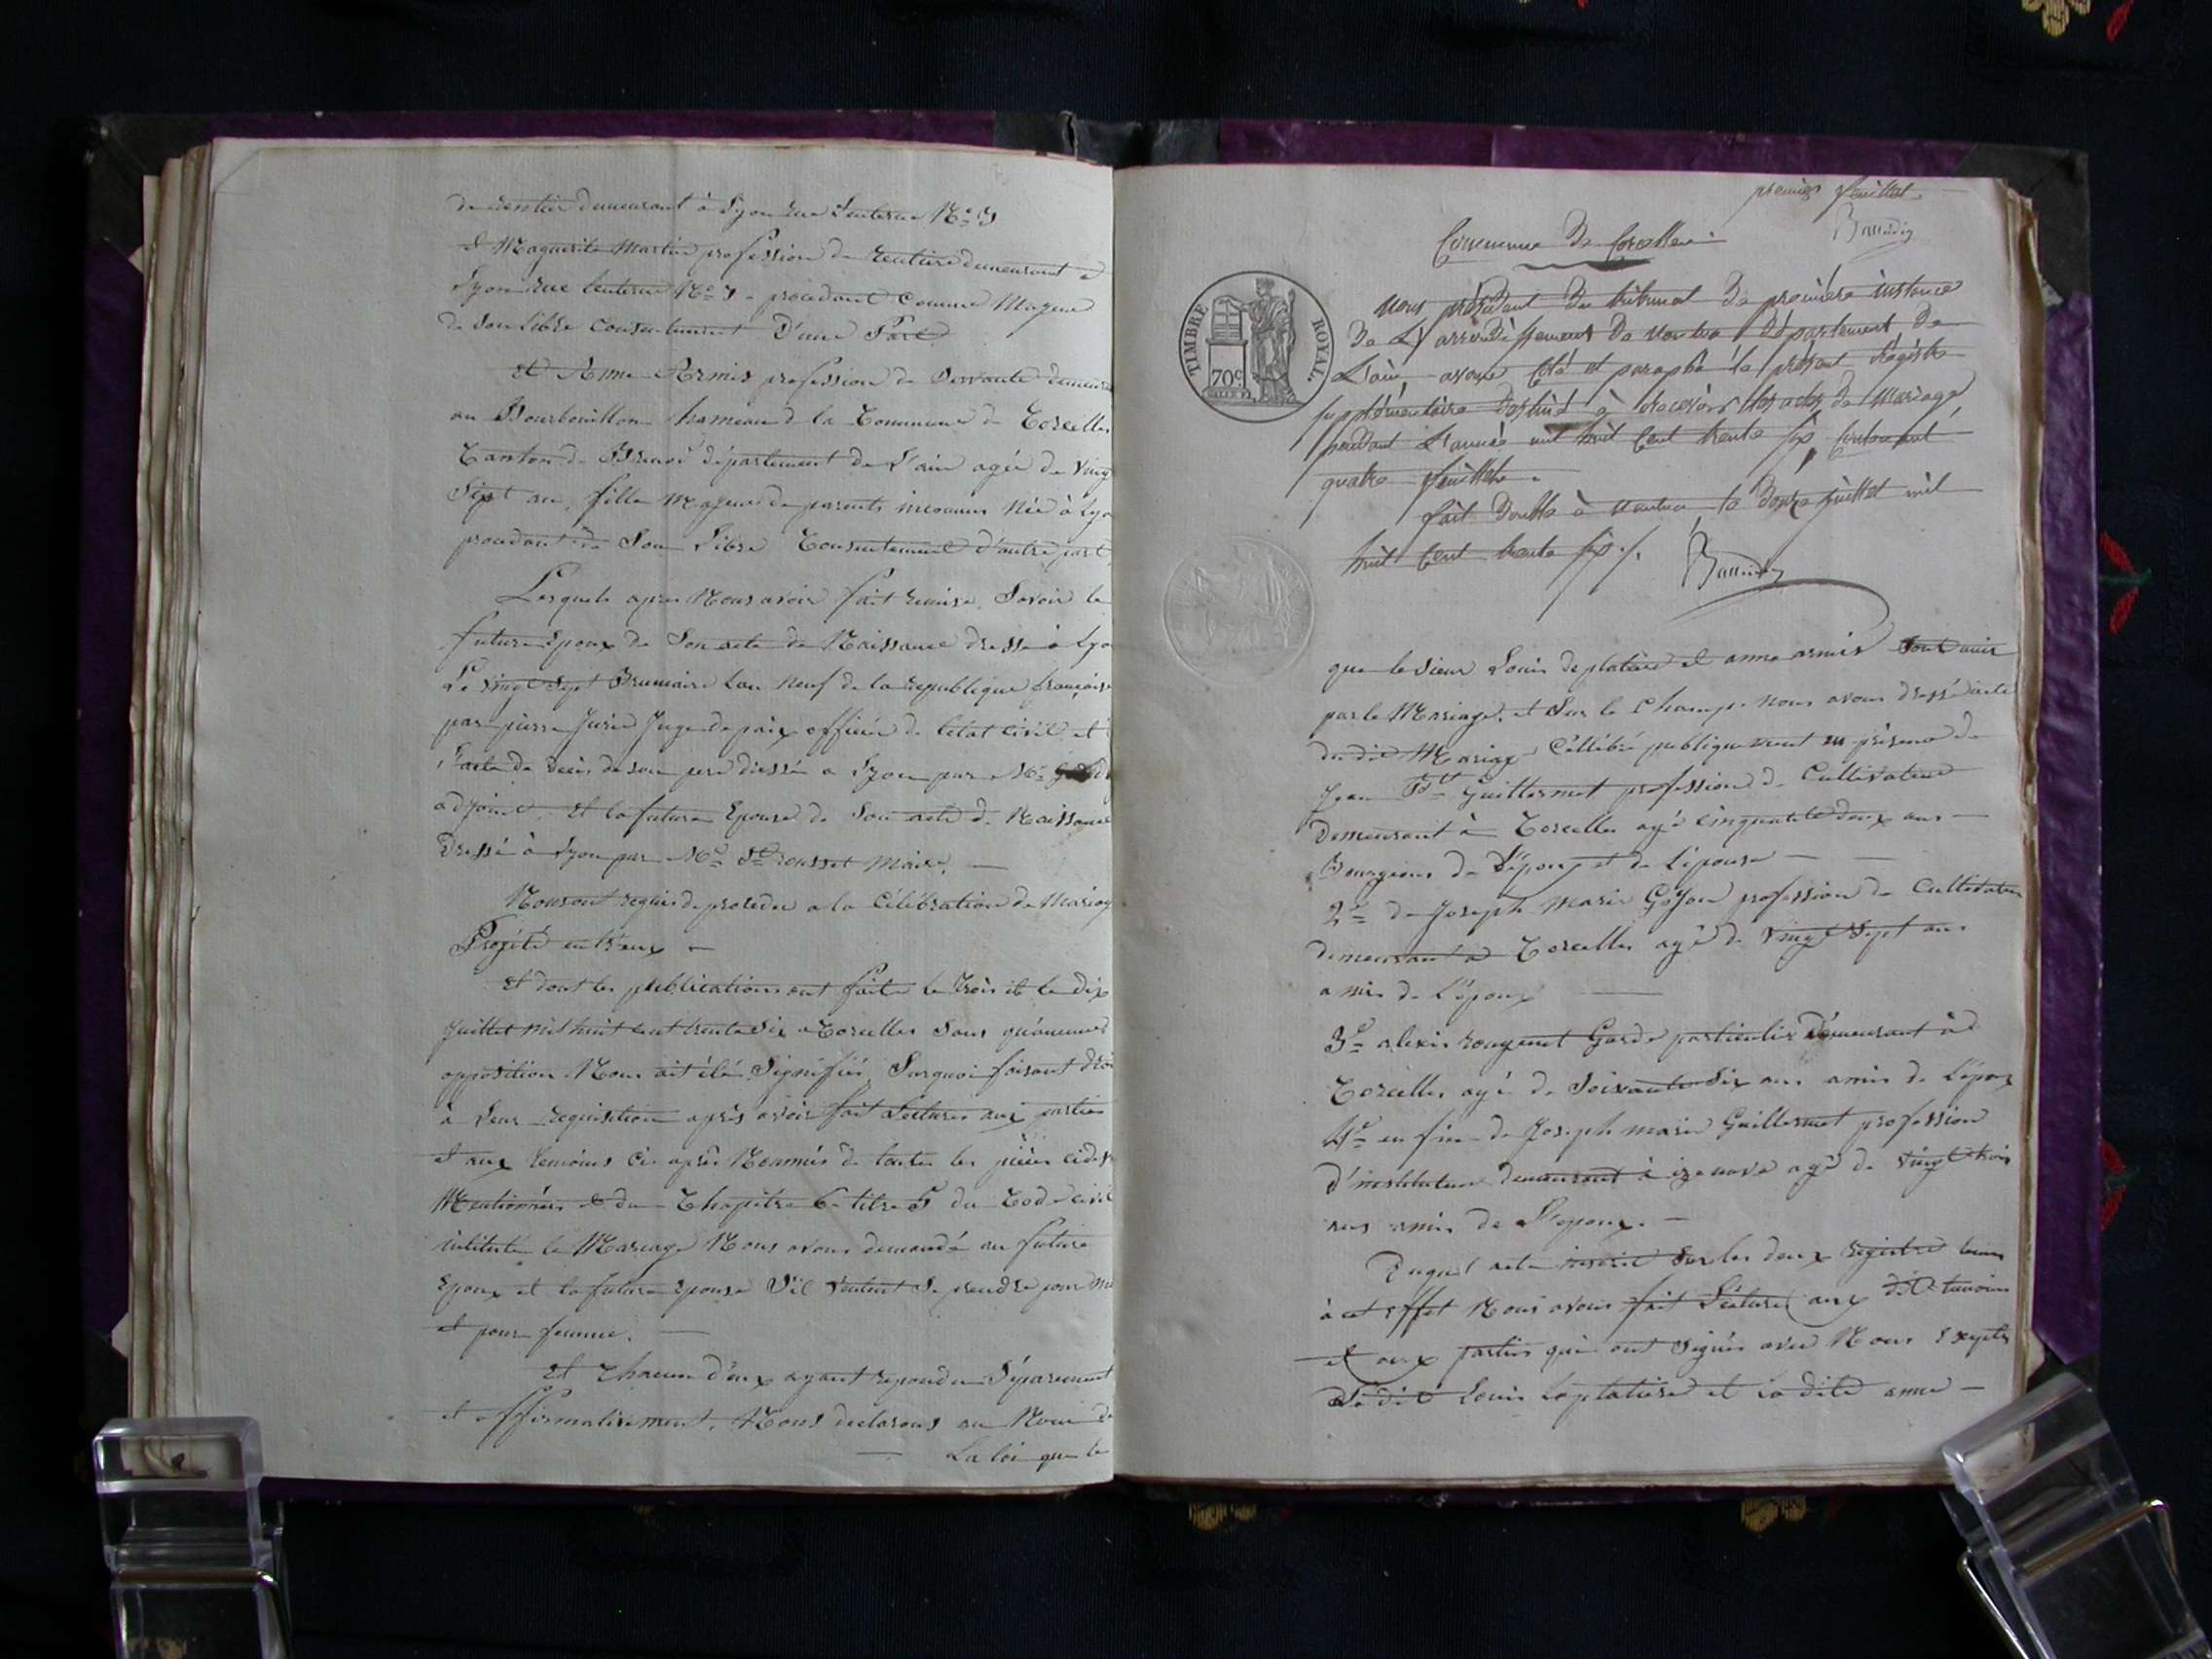 de rentier demeurant à Lyon rue Lenterne No 3
et Marguerite Martin profession de rentiere demeurant a
Lyon rue lenterne No 3 procedant comme Majeur
de son libre consentement D'une Part
Et Anne Armis profession de Servante demeura
au Bourbouillon hameau de la Commune de Corcelles
Canton de Brenod département de l'ain agée de Vingt
Sept an, fille Majeure de parents inconnus Née à Lyo
procedant de Son Libre Consentement d'autre part
Lesquels apres Nous avoir fait remise, Savoir le
futur Epoux de Son acte de Naissance dressé à Lyo
Le Vingt Sept Brumaire lan neuf de la republique française
par pierre Juge de paix officier de l'etat civil et
l'acte de décès de son pere dressé a Lyon par Mr
adjoint. Et la future Epouse de Son acte de Naissance
Dressé à Lyon par Mr rousset Maire.
Nous ont requis de proceder a la Célébration du Mariag
Projété entr'eux
Et dont les publications ont faite le trois et le dix
Juillet mil huit cent trente Six a Corcelles Sans qu'aucune
opposition Nous ait été Signifiée, Surquoi faisant droi
à Leur requisition après avoir fait Lectures aux parties
et aux temoins ci-après Nommés de toutes les pièces cides
Mentionnées et du Chapitre 6 titre 5 du Code civil
intitulé le Mariage Nous avons demandé au futur
Epoux et la future Epouse S'il Veulent Se prendre pour ma
et pour femme.
Et Chacun d'eux ayant repondu Séparement
et affirmativement, Nous declarons au Nom de
La loi que le
premier feuillet.
Commune de Corcelles
TIMBRE ROYAL.
70c
Nous président du tribunal de première instance
de L'arrondissement de nantua Département de
L'ain, avons coté et paraphé le présent Régistre
supplémentaire destiné à recevoir les actes de Mariage
pendant L'année mil huit cent trente six contenant
quatre feuillets.
fait double à nantua le douze juillet mil
huit cent trente six ./.
que le Sieur Louis deplatiere et anne armis Sont unis
par le Mariage, et Sur le Champ Nous avons dressé acte
du dit Mariage Célébré publiquement en présence de
Jean Bte Guillermet profession de Cultivateur
demeurant à Corcelles agé cinquante deux ans
Bourgeois de l'époux et de l'épouse
2e de Joseph Marie Goyon profession de Cultivateur
demeurant à Corcelles agé de Vingt Sept ans
amis de l'époux
3e alexis rougemet Garde particulier demeurant à
Corcelles agé de Soixante Six ans amis de l'époux
4e en fin de Joseph marie Guillermet profession
d'instituteur demeurant à izenave agé de Vingt trois
ans amis de l'epoux.
Duquel acte inscrit Sur les deux registre tenus
à cet effet Nous avons fait Lecture aux dit temoins
et aux parties qui ont Signés avec Nous Exepté
Le dit Louis Laplatiere et la dite anne